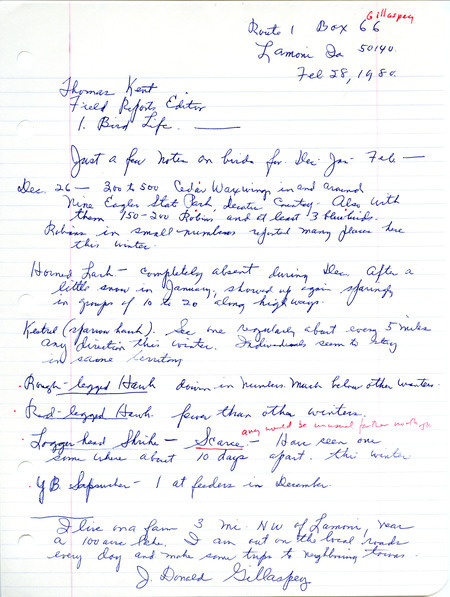 Gillaspey
Route 1 Box 66
Lamoni Ia 50140.
Feb 28, 1980.
Thomas Kent.
Field Reports Editor
I. Bird Life. —
Just a few notes on birds for Dec-Jan-Feb —
Dec. 26 — 200 to 500 Cedar Waxwings in and around
Nine Eagles State Park, Decatur County. Also with
them 150-200 Robins and at least 3 bluebirds.
Robins in small numbers reported many places here
this winter.
Horned Lark — Completely absent during Dec. After a
little snow in January, showed up again sparingly
in groups of 10 to 20 along highways.
Kestrel (sparrow hawk). See one regularly about every 5 miles
any direction this winter. Individuals seem to stay
in same territory
Rough-legged Hawk down in numbers. Much below other winters.
Red-legged Hawk fewer than other winters.
any would be unusual further north
Loggerhead Shrike — Scarce — Have seen one
some where about 10 days apart. this winter
Y.B. Sapsucker — 1 at feeders in December.
I live on a farm 3 mi. NW of Lamoni, near
a 100 acre lake. I am out on the local roads
every day and make some trips to neighboring towns.
J. Donald Gillaspey